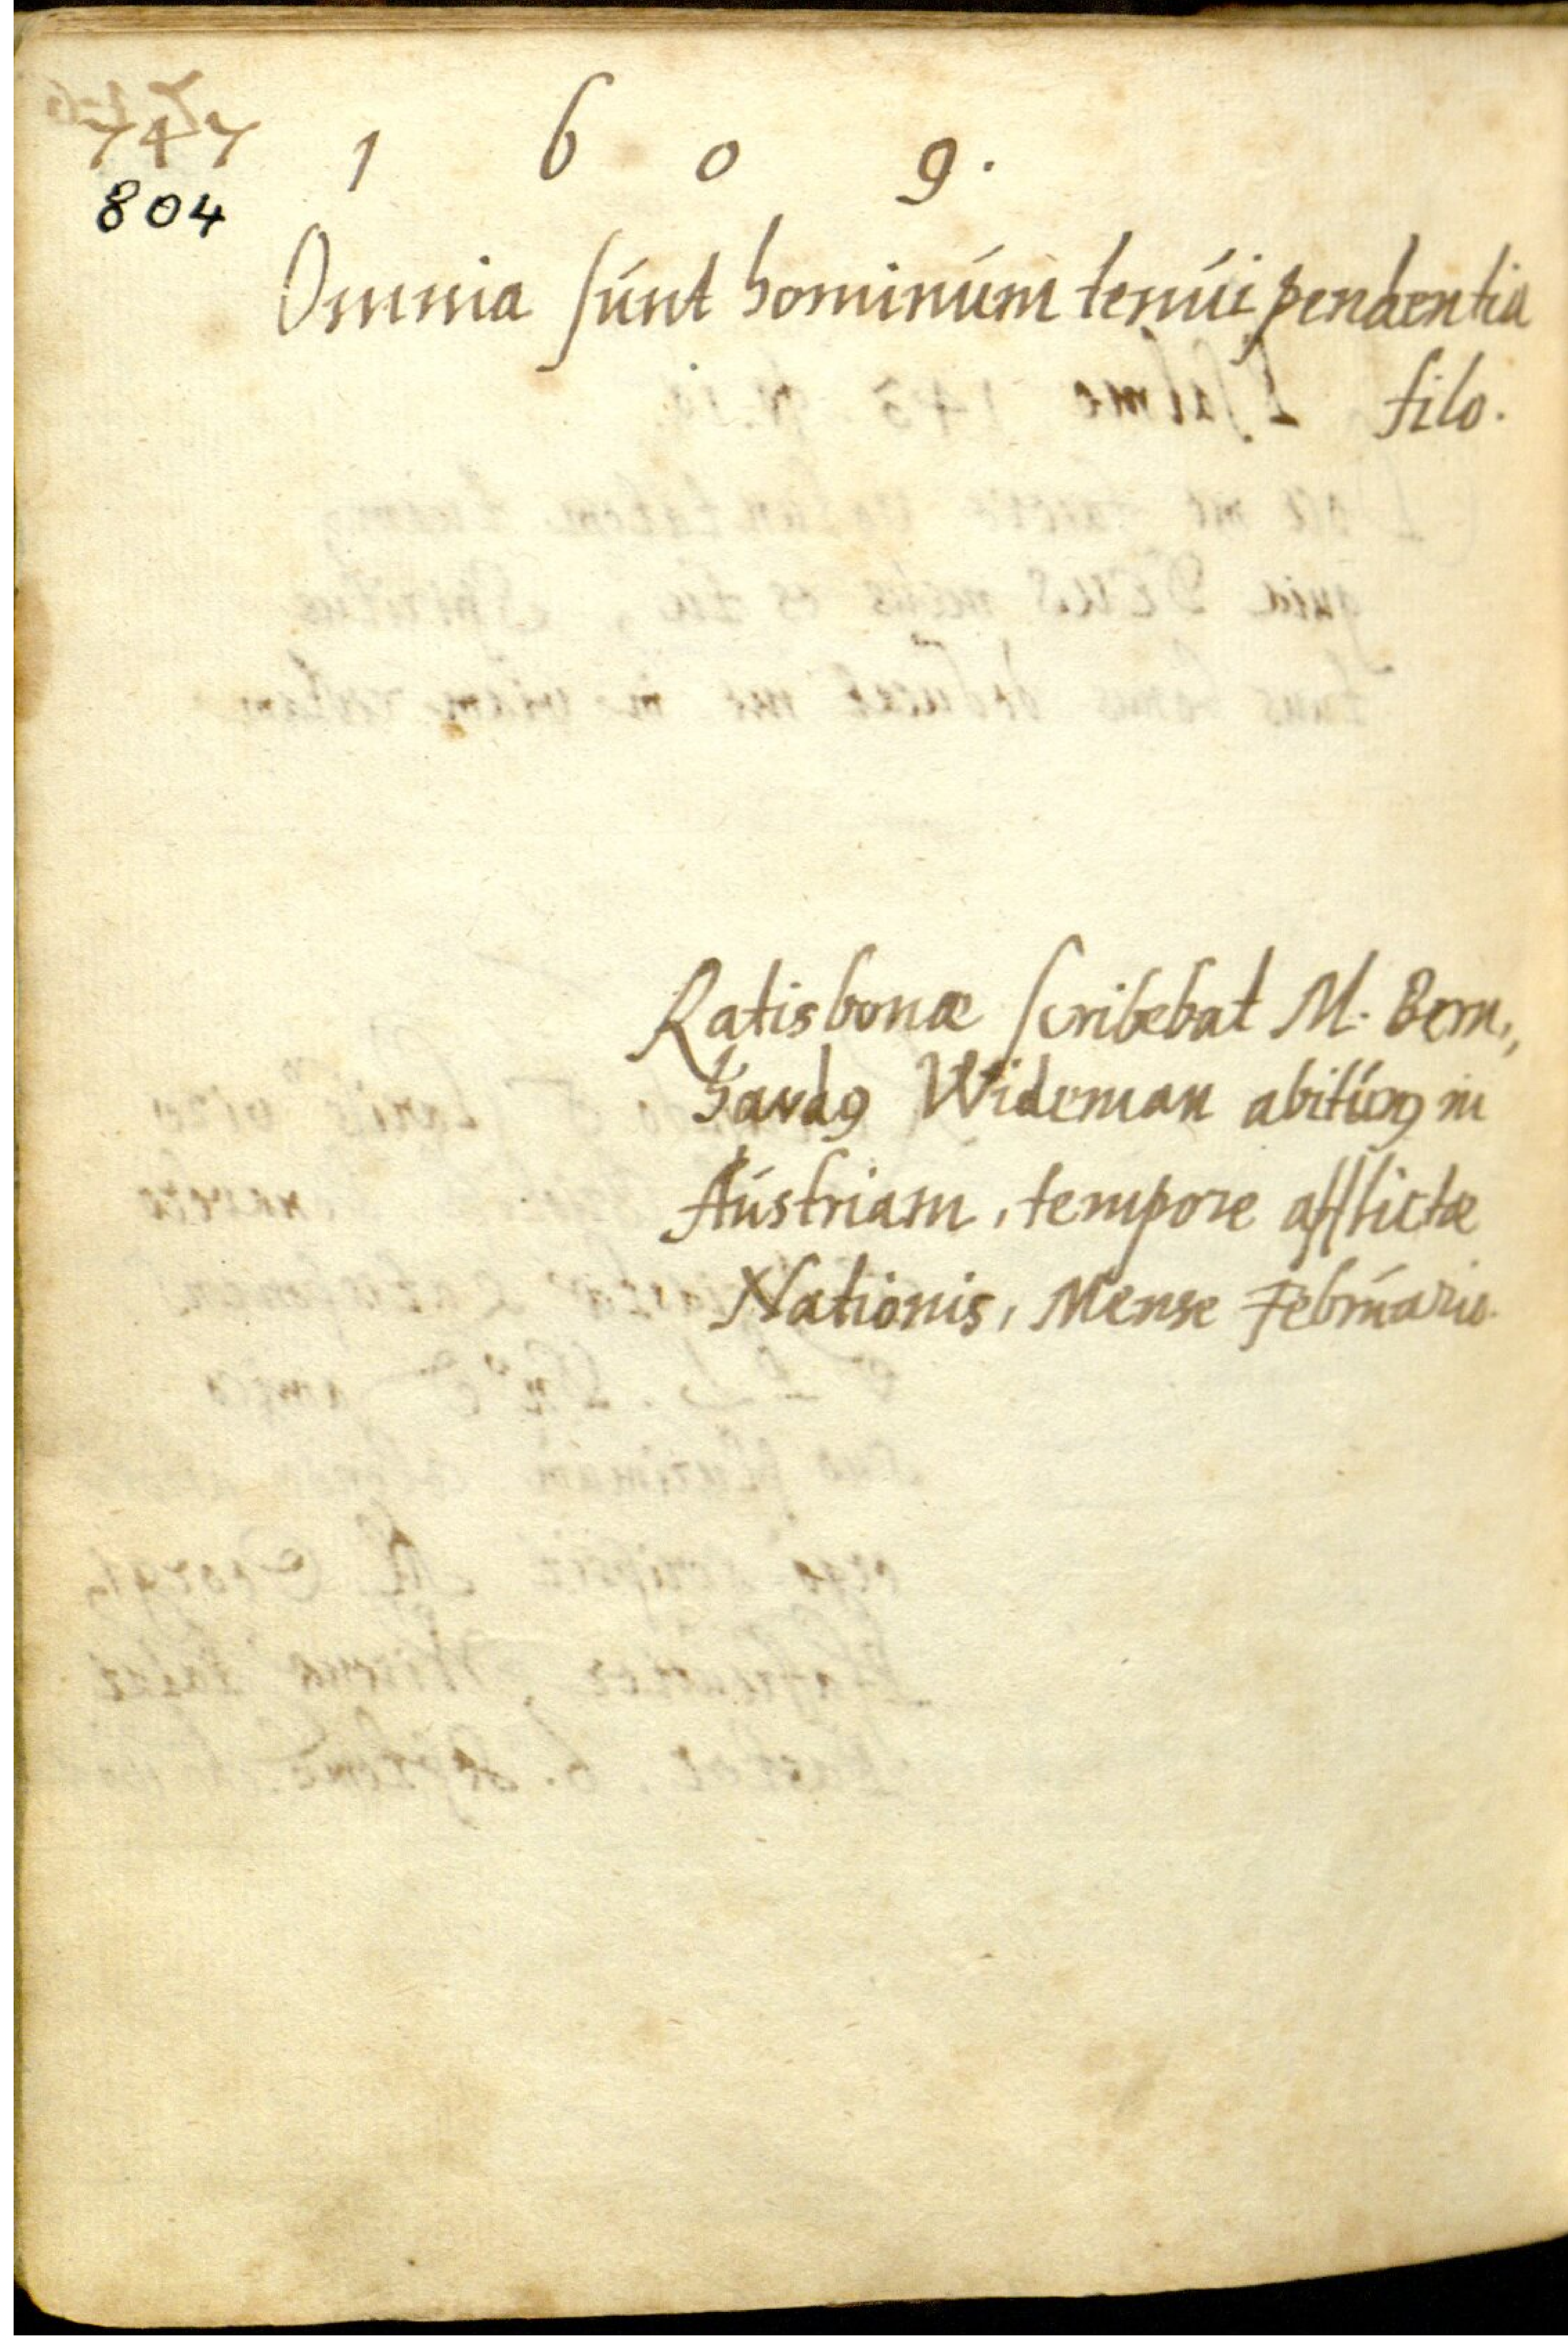 747
804
1 6 0 9.
Omnia súnt hominúm tenúi pendentia
filo.
Ratisbonæ scribebat M. Bern,,
hardꝰ Wideman abitúrꝰ in
Aústriam, tempore afflictæ
Nationis, Mense Febrúario.